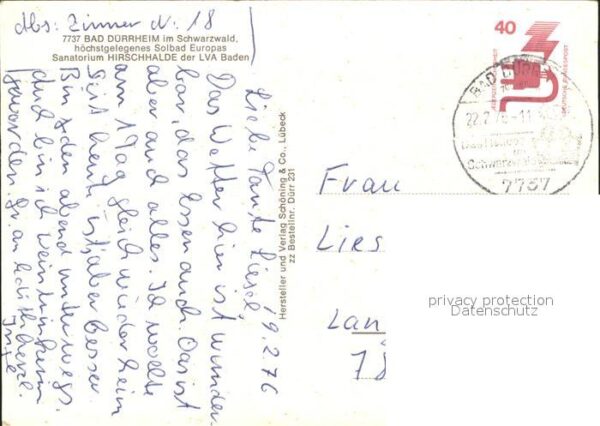 Abs: Zimmer N: 18
7737 BAD DÜRRHEIM im Schwarzwald,
höchstgelegenes Solbad Europas
Sanatorium HIRSCHHALDE der LVA Baden
19.2.76
Liebe Tante Liesel,
Das Wetter hier ist wunder
bar, das Essen auch. Das ist
aber auch alles. Ich wollte
am 1 Tag gleich wieder heim
seit heute ist aber besser.
Bin jeden abend unterwegs.
und bin ich Weintrinkerin
geworden.
Inge
Hersteller und Verlag Schöning & Co., Lübeck
zz Bestellnr. Dürr 231
40
DEUTSCHE BUNDESPOST
BAD DÜRR
22.2.76-11
7737
Frau
Lies
Lan
78
privacy protection
Datenschutz